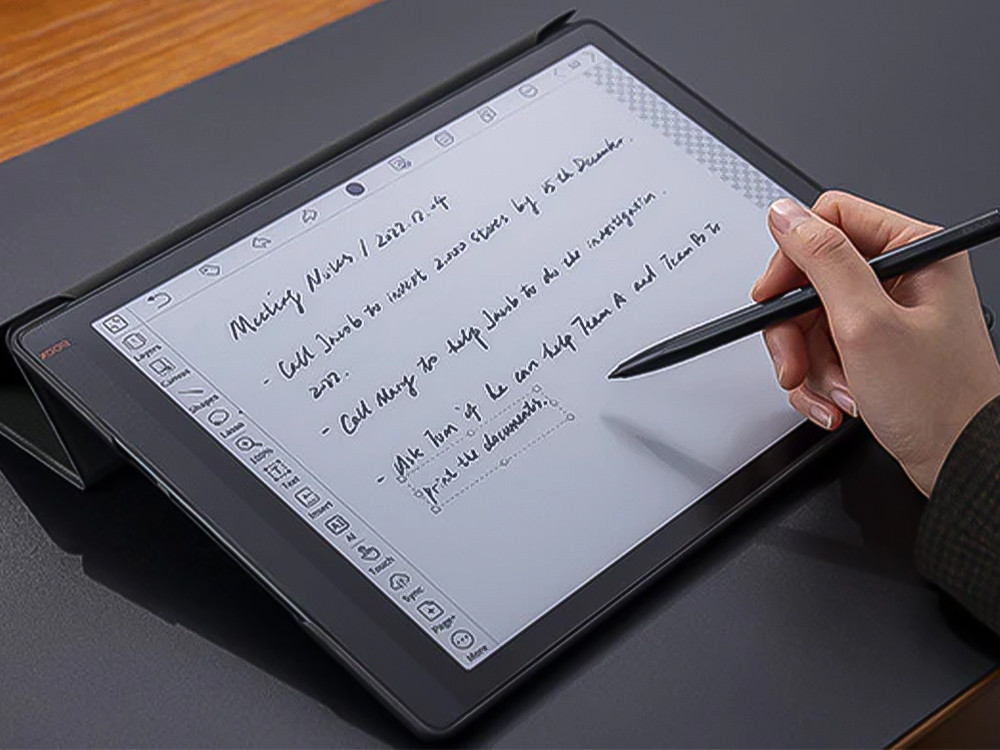 Meeting Notes / 2022.12.4
- Call Jacob to invest 2000 stores by 15th December.
2022.
- Call Mary to help Jacob to do the investigation.
- Ask Tom if he can help Team A and Team B to
print the documents.
BOOX
Layers
Canvas
Shapes
Label
Text
Insert
AI
Touch
Sync
Page+
More